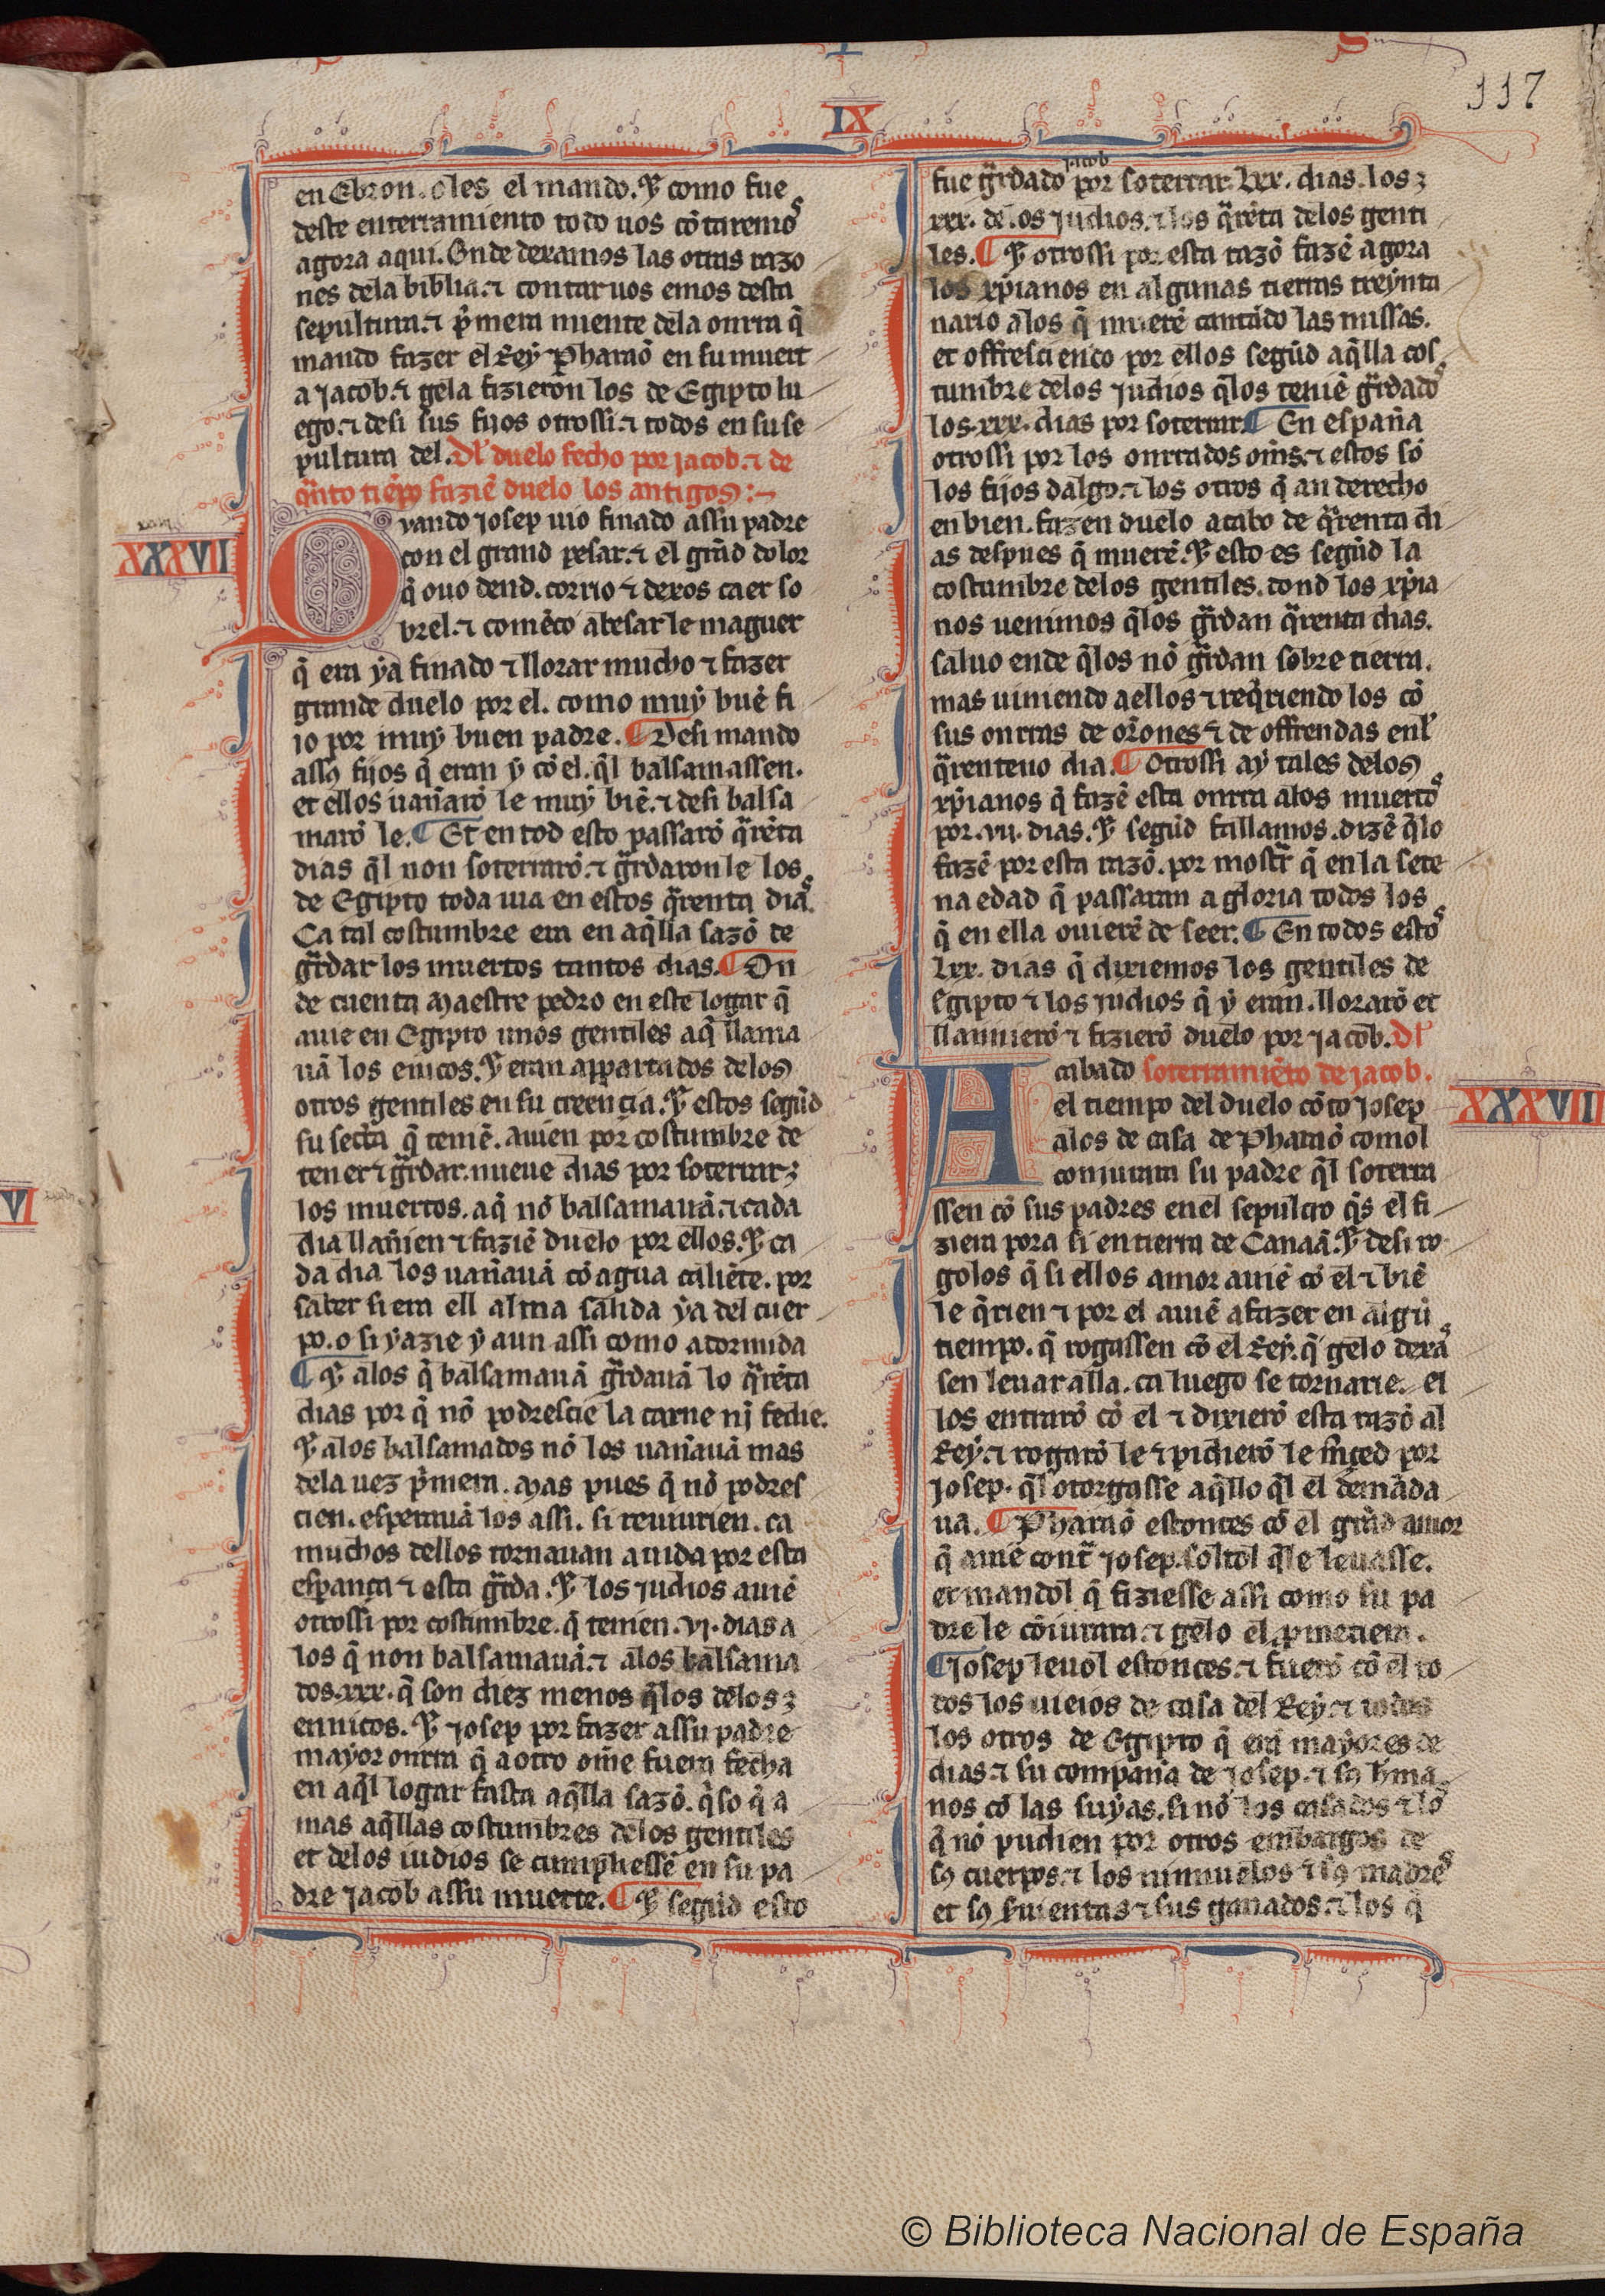 IX
117
en Ebron. o les el mando. ⁊ como fue
deste enterramiento todo uos cõtaremos
agora aqui. Onde dexamos las otras razo
nes dela biblia. ⁊ contar uos emos desta
sepultura. ⁊ p̃mera miente dela onrra q̃
mando fazer el Rey Pharaõ en su muert
a Jacob. ⁊ gela fizieron los de Egipto lu
ego. ⁊ desi sus fijos otrossi. ⁊ todos en su se
pultura del. Dl duelo fecho por jacob. ⁊ de
q̃nto tiẽpo faziẽ duelo los antigos:~
XXXVI
Quando josep uio finado assu padre
con el grand pesar. ⁊ el grãd dolor
q̃ ouo dend. corrio ⁊ dexos caer so
brel. ⁊ comẽço abesar le maguer
q̃ era ya finado ⁊ llorar mucho ⁊ fazer
grande duelo por el. como muy buẽ fi
io por muy buen padre. ¶ Desi mando
assꝰ fijos q̃ eran y cõ el. q̃l balsamassen.
et ellos uañarõ le muy biẽ. ⁊ desi balsa
marõ le. ¶ Et en tod esto passarõ q̃rẽta
dias q̃l non soterrarõ. ⁊ g̃rdaron le los
de Egipto toda uia en estos q̃renta dias.
Ca tal costumbre era en aq̃lla sazõ de
g̃rdar los muertos tantos dias. ¶ On
de cuenta Maestre pedro en este logar q̃
auie en Egipto unos gentiles aq̃ llama
uã los enicos. ⁊ eran appartados delos
otros gentiles en su creencia. ⁊ estos segũd
su secta q̃ teniẽ. auien por costumbre de
tener ⁊ g̃rdar. nueue dias por soterrar
los muertos. aq̃ nõ balsamauã. ⁊ cada
dia llañien ⁊ faziẽ duelo por ellos. ⁊ ca
da dia los uañauã cõ agua caliẽte. por
saber si era ell alma salida ya del cuer
po. o si yazie y aun assi como adormida
¶ ⁊ alos q̃ balsamauã g̃rdauã lo q̃rẽta
dias por q̃ nõ podrescie la carne nj̃ fedie.
⁊ alos balsamados nõ los uañauã mas
dela uez p̃mera. Mas pues q̃ nõ podres
cien. esperauã los assi. si reuiurien. ca
muchos dellos tornauan auida por esta
esperança ⁊ esta g̃rda. ⁊ los judios auiẽ
otrossi por costumbre. q̃ tenien. vj. dias a
los q̃ non balsamauã. ⁊ alos balsama
dos. xxx. q̃ son diez menos q̃los delos
ennicos. ⁊ josep por fazer assu padre
mayor onrra q̃ a otro om̃e fuera fecha
en aq̃l logar fasta aq̃lla sazõ. q̃so q̃ a
mas aq̃llas costumbres delos gentiles
et delos iudios se cumpliessẽ en su pa
dre jacob assu muerte. ¶ ⁊ segũd esto
jacob
fue g̃rdado por soterrar. Lxx. dias. los
xxx. delos judios. ⁊ los q̃rẽta delos genti
les. ¶ ⁊ otrossi por esta razõ fazẽ agora
los xp̃ianos en algunas tierras treynta
nario alos q̃ muerẽ cantãdo las missas.
et offresciendo por ellos segũd aq̃lla cos
tumbre delos judios q̃los teniẽ g̃rdados
los. xxx. dias por soterrar. ¶ En españa
otrossi por los onrrados om̃s. ⁊ estos sõ
los fijos dalgo. ⁊ los otros q̃ an derecho
en bien. fazen duelo acabo de q̃renta di
as despues q̃ muerẽ. ⁊ esto es segũd la
costumbre delos gentiles. dond los xp̃ia
nos uenimos q̃los g̃rdan q̃renta dias.
saluo ende q̃los nõ g̃rdan sobre tierra.
mas uiniendo aellos ⁊ req̃riendo los cõ
sus onrras de or̃ones ⁊ de offrendas enl
q̃renteno dia. ¶ Otrossi ay tales delos
xp̃ianos q̃ fazẽ esta onrra alos muertos
por. vii. dias. ⁊ segũd fallamos. dizẽ q̃lo
fazẽ por esta razõ. por mostr̃ q̃ en la sete
na edad q̃ passaran a gloria todos los
q̃ en ella ouierẽ de seer. ¶ En todos estos
Lxx. dias q̃ dixiemos los gentiles de
Egipto ⁊ los judios q̃ y eran. llorarõ et
llannierõ ⁊ fizierõ duelo por jacob. Dl
Acabado soterramiẽto de jacob.
XXXVII
el tiempo del duelo cõto josep
alos de casa de Pharaõ comol
coniurara su padre q̃l soterra
ssen cõ sus padres enel sepulcro q̃s el fi
ziera pora si en tierra de Canaã. ⁊ desi ro
golos q̃ si ellos amor auiẽ cõ el ⁊ biẽ
le q̃rien ⁊ por el auiẽ afazer en algũ
tiempo. q̃ rogassen cõ el Rey. q̃ gelo dexas
sen leuar alla. ca luego se tornarie. el
los entrarõ cõ el ⁊ dixierõ esta razõ al
Rey. ⁊ rogarõ le ⁊ pidierõ le m̃ced por
josep. q̃l otorgasse aq̃llo q̃l el demãda
ua. ¶ Pharaõ estonces cõ el grãd amor
q̃ auiẽ contr̃ josep. soltol q̃le leuasse.
et mandol q̃ fiziesse assi como su pa
dre le cõiurara. ⁊ gelo el p̃metiera.
¶ josep leuol estonces. ⁊ fuerõ cõ el to
dos los uieios de casa del Rey. ⁊ todos
los otros de Egipto q̃ erã mayores de
dias. ⁊ su compaña de josep. ⁊ sꝰ h̃ma
nos cõ las suyas. si nõ los casados ⁊ los
q̃ nõ pudien por otros embargos de
sꝰ cuerpos. ⁊ los ninnuelos ⁊ sꝰ madres
et sꝰ s̃uientas ⁊ sus ganados. ⁊ los q̃
VI
© Biblioteca Nacional de España